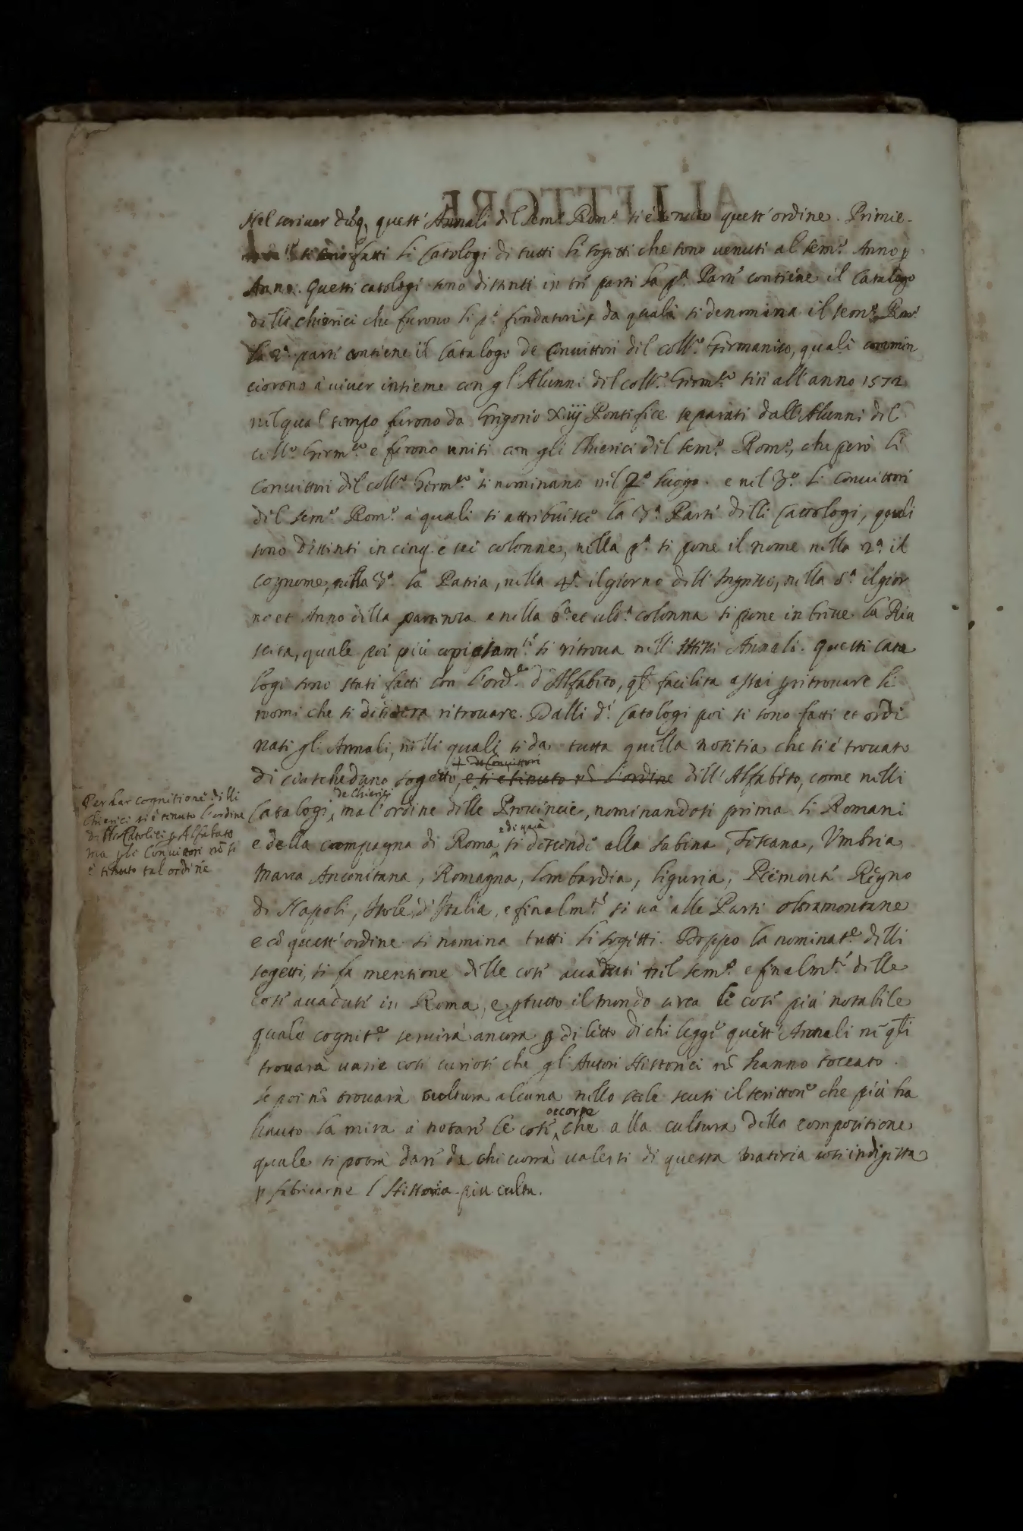 Nel scriver duq, quest' Annali del Sem.º Rom.º si è tenuto quest' ordine. Primie-
si sono fatti li Catologi di tutti li sogetti che sono uenuti al Sem.º Anno p
Anno. Questi catologi sono distinti in tre parti la p.ª Parte contiene il Catalogo
delli chierici che furono li p.i fondatori, e da quali si denomina il Sem.º Rom.º
la 2.ª parte contiene il Catalogo de Conuittori del coll.º Germanico, quali comin
ciorono à uiuer insieme con gl' Alunni del coll.º Germ.co sin all' anno 1572
nel qual tempo furono da Gregorio Xiij Pontefice separati dall' Alunni del
coll.º Germ.co e furono uniti con gli Chierici del Sem.º Rom.º, che però li
Conuittori del coll.º Germ.co si nominano nel 2.º luogo. e nel 3.º li Conuittori
del Sem.º Rom.º a quali si attribuisce la 3.ª Parte delli Catologi, quali
sono distinti in cinq. e sei colonne, nella p.ª si pone il nome nella 2.ª il
cognome, nella 3.ª la Patria, nella 4.ª il giorno dell' Ingresso, nella 5.ª il gior
no et Anno della partenza e nella 6.ª et ult.ª colonna si pone in breue la Riu
scita, quale poi più copiosam.te si ritroua nell' stessi Annali. Questi Cata
logi sono stati fatti con l'ord.e d'Alfabeto, qle facilita assai p ritrouare li
nomi che si desidera ritrouare. Dalli d.i Catologi poi si sono fatti et ordi
nati gl' Annali, nelli quali si da tutta quella notitia che si è trouato
+ de Conuittori
di ciascheduno sogetto, e si è tenuto nõ l'ordine dell' Alfabeto, come nelli
de Chierici
Catalogi, ma l'ordine delle Prouincie, nominandosi prima li Romani
e di poi
e della campagna di Roma, si discende alla Sabina, Toscana, Vmbria
Marca Anconitana, Romagna, Lombardia, Liguria, Piemonte Regno
di Napoli, Isole d'Italia, e finalm.te si ua alle Parti oltramontane
e cõ quest' ordine si nomina tutti li sogetti. Doppo la nominat.e delli
sogetti, si fa mentione delle cose accadute nel Sem.º e finalm.te delle
cose accadute in Roma, e p tutto il mondo circa le cose più notabile
quale cognit.e seruirà ancora p diletto di chi legge quest' Annali ne qli
trouarà uarie cose curiose che gl' Autori Historici nõ hanno toccato.
Se poi nõ trouarà cultura alcuna nello stile scusi il scrittore che più ha
occorse
hauto la mira a notare le cose, che alla cultura della compositione
quale si potrà dare da chi uorrà ualersi di questa materia così indigesta
p fabricarne l'Historia più culta.
Per dar cognitione delli
Chierici si è tenuto l'ordine
p Alfabeto
ma gli Conuittori nõ si
è tenuto tal ordine
AL LETTORE